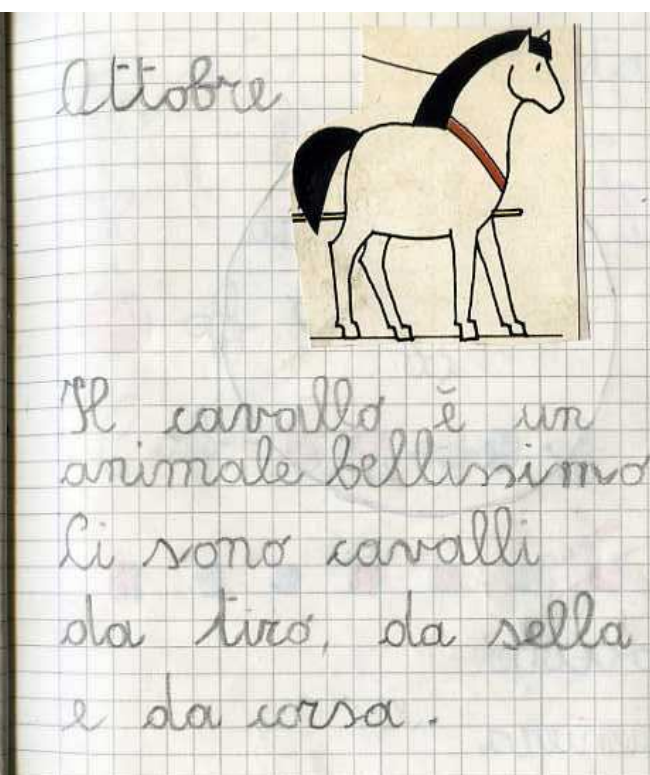 Ottobre
Il cavallo è un
animale bellissimo
Ci sono cavalli
da tiro, da sella
e da corsa.